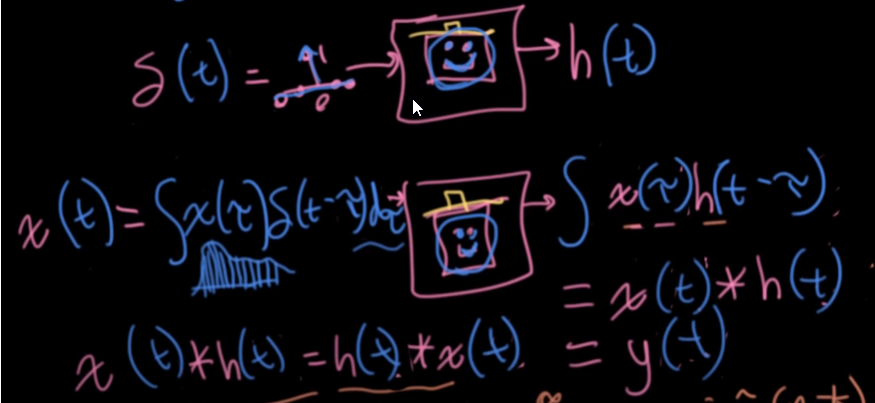 δ(t) = 1 0 → → h(t)
x(t) = ∫x(τ)δ(t-τ)dτ → → ∫ x(τ)h(t-τ)
= x(t) * h(t)
x(t)*h(t) = h(t)*x(t) = y(t)